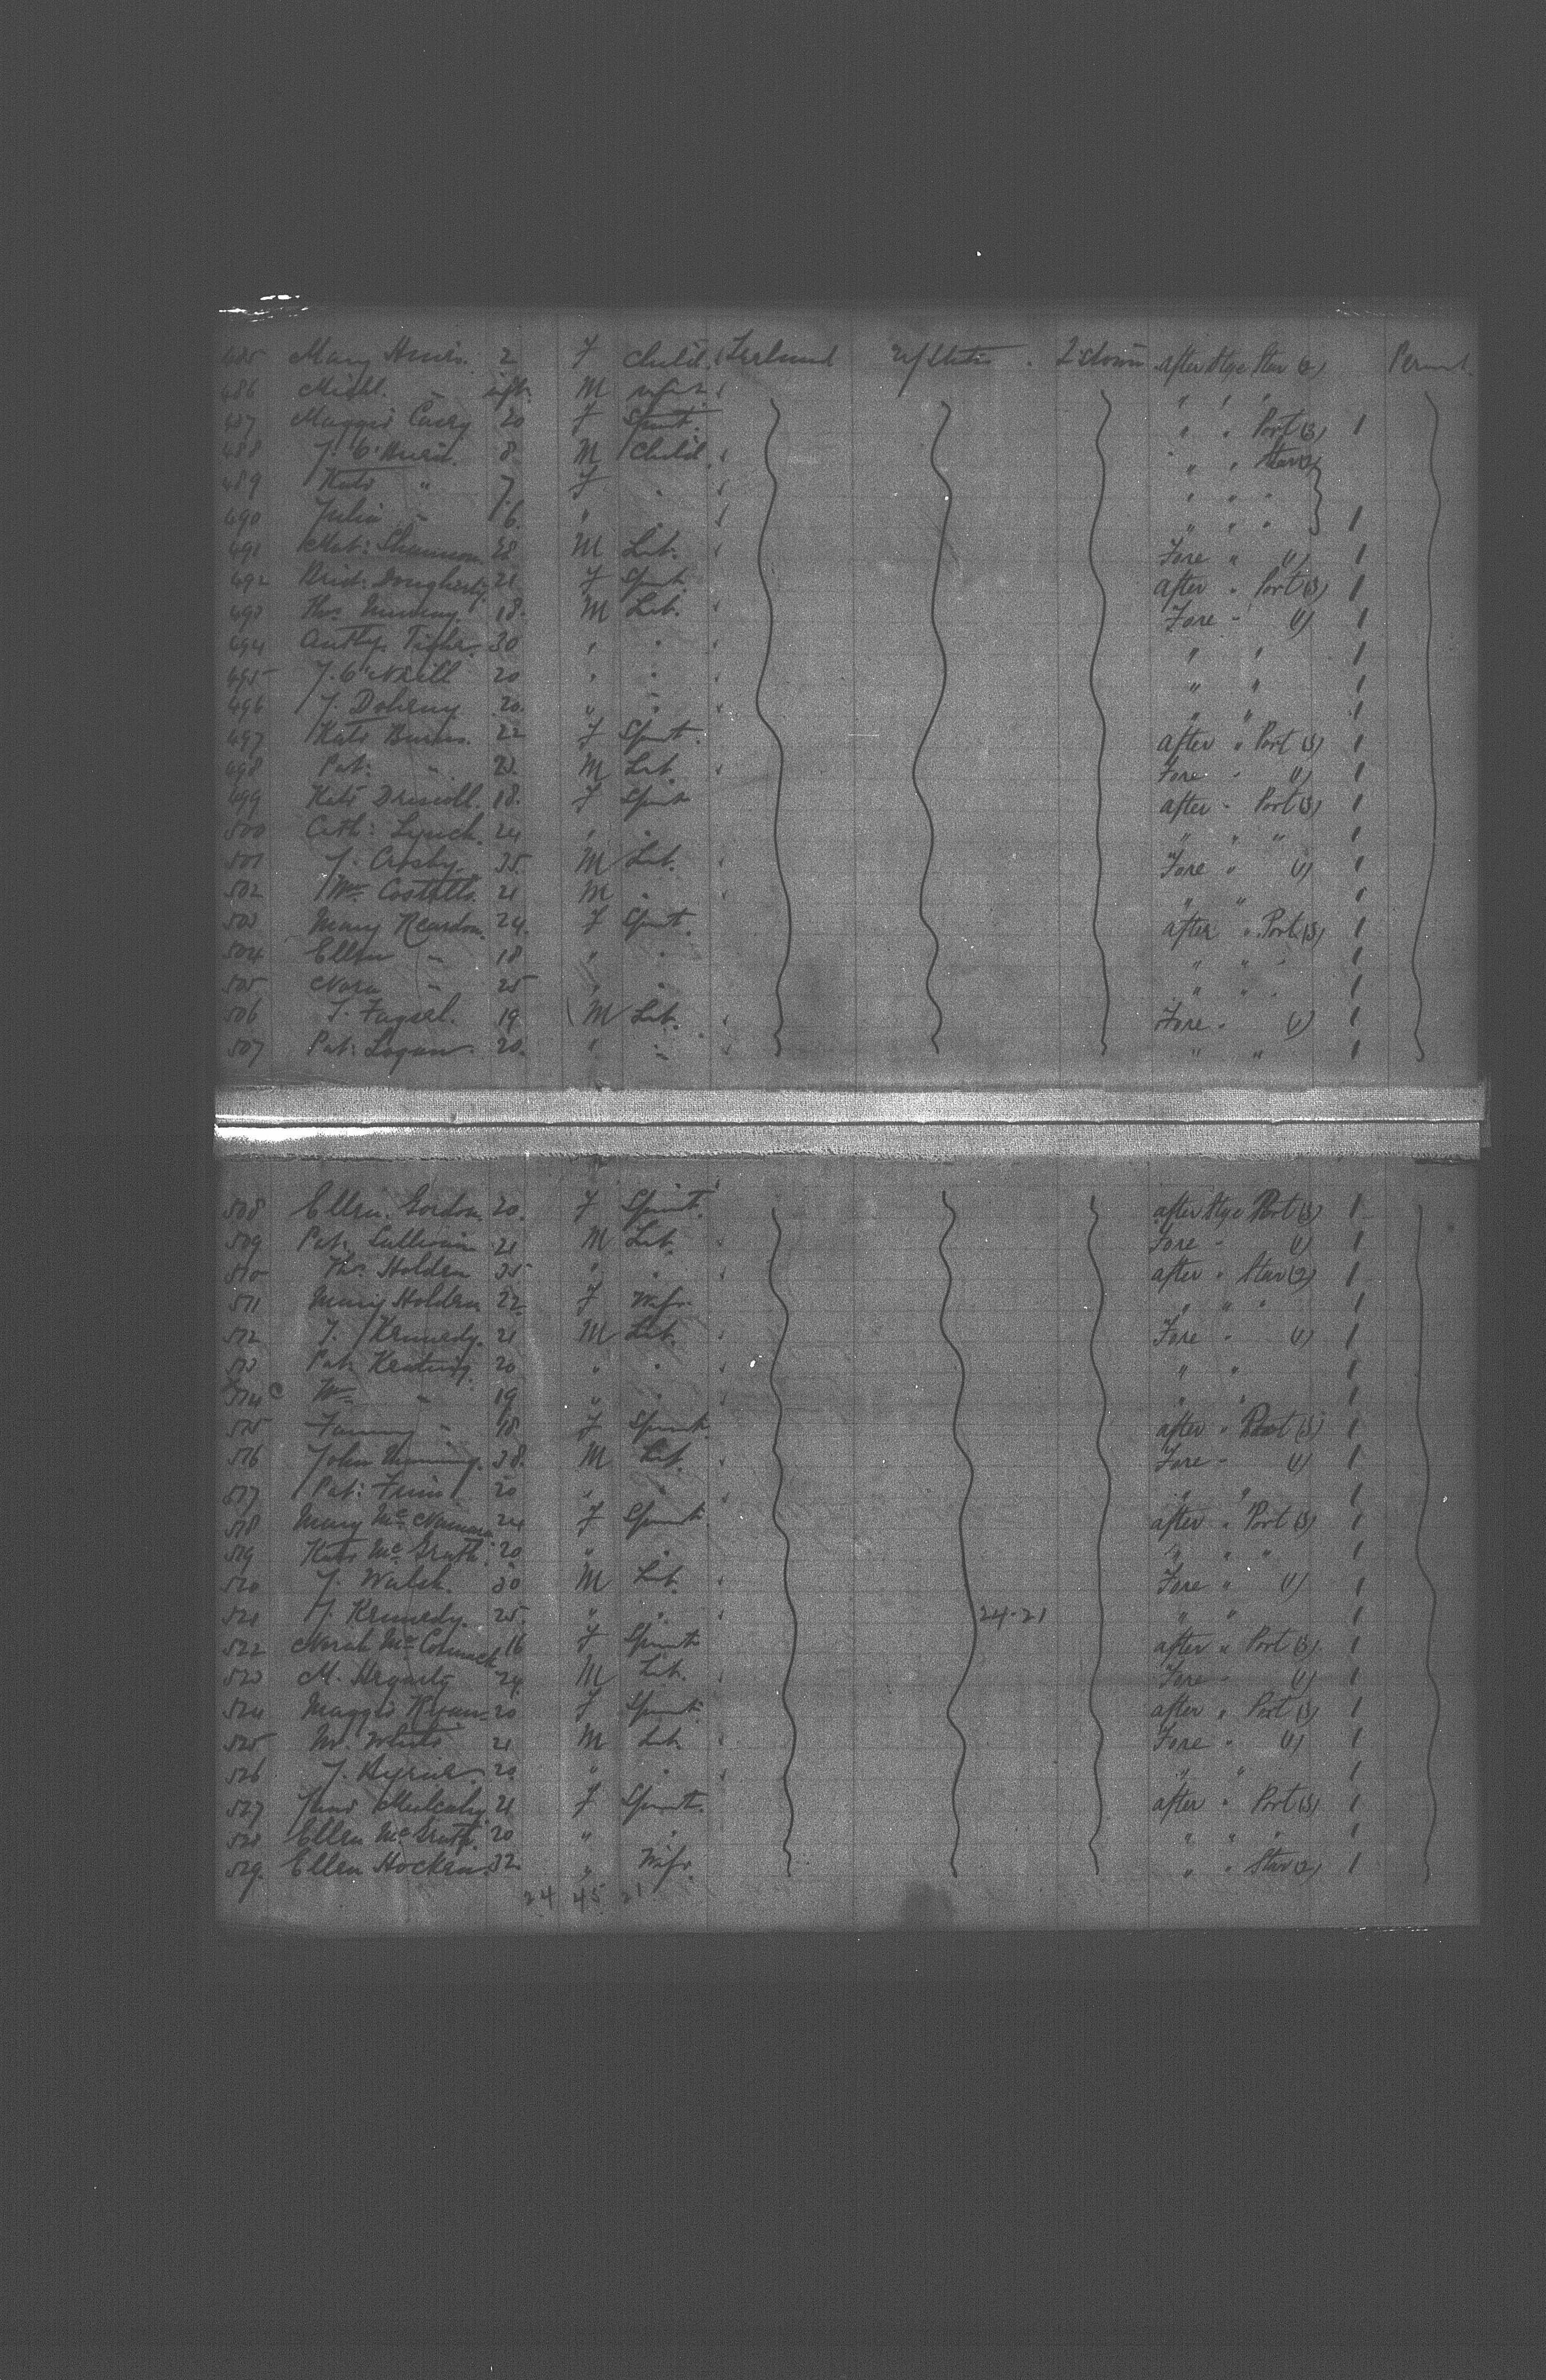 485 Mary 2 F Child. Ireland U/States. Q'stown after Stge Star (2) Permt.
486 Michl. " inft. M infant " " "
487 Maggie Casey 20 F Spinst. " " Port (3) 1
488 J. O'Brien. 8 M Child. " " Star (2)
489 Kate " 7 F " " " "
490 Julia " 6 " " " " " 1
491 Mat: Shannon 28 M Lab. Fore " (1) 1
492 Brid: Dougherty 21 F Spinst after " Port (3) 1
493 Thos 18. M Lab. Fore " (1) 1
494 Anthy 30 " " " " 1
495 J. O'Neill 20 " " " " 1
496 J. Doheny 20. " " " " 1
497 Kate Burns. 22 F Spinst. after " Port (3) 1
498 Pat: " M Lab. Fore " (1) 1
499 Kate Driscoll. 18. F Spinst after " Port (3) 1
500 Cath: Lynch. 24 " " " " " 1
501 J. Crosby. 35. M Lab. Fore " (1) 1
502 Wm Costello. 21 M " " " 1
503 Mary Reardon. 24. F Spinst. after " Port (3) 1
504 Ellen " 18 " " " " " 1
505 Nora " 25 " " " " " 1
506 19 M Lab. Fore " (1) 1
507 Pat: Logan. 20. " " " " 1
508 Ellen Gordon. 20. F Spinst. after Stge Port (3) 1
509 Pat: Sullivan 21 M Lab. Fore " (1) 1
510 Thos Holden 35 " " after " Star (2) 1
511 Mary Holden 22 F Wife. " " " 1
512 J. Kennedy. 21 M Lab. Fore " (1) 1
513 Pat: Keating. 20 " " " " 1
514 c Wm " 19 " " " " 1
515 Fanny " 18. F Spinst. after " Port (3) 1
516 John 38. M Lab. Fore " (1) 1
517 Pat: 20 " " " " 1
518 Mary McNamara 24 F Spinst. after " Port (3) 1
519 Kate McGrath. 20 " " " " " 1
520 J. Walsh. 30 M Lab. Fore " (1) 1
521 J. Kennedy. 25. " " 24-21 " " 1
522 Norah McCormack 16 F Spinst after " Port (3) 1
523 M. Hegarty 24 M Lab. Fore " (1) 1
524 Maggie Ryan 20 F Spinst. after " Port (3) 1
525 White 21 M Lab. Fore " (1) 1
526 J. 20 " " " " 1
527 Mulcahy 21 F Spinst. after " Port (3) 1
528 Ellen McGrath. 20 " " " " " 1
529. Ellen Hocken. 32 " Wife. " " Star (2) 1
24 45 21